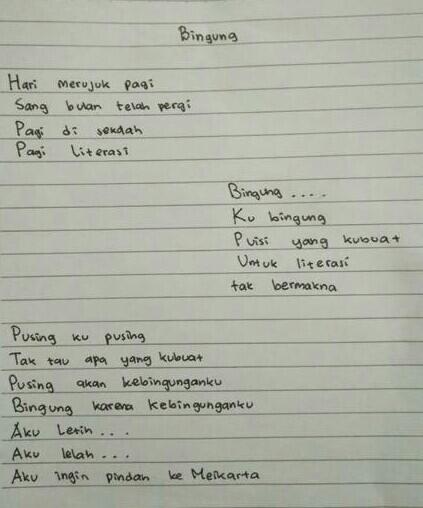 Bingung
Hari merujuk pagi
Sang bulan telah pergi
Pagi di sekolah
Pagi Literasi
Bingung ....
Ku bingung
Puisi yang kubuat
Untuk literasi
tak bermakna
Pusing ku pusing
Tak tau apa yang kubuat
Pusing akan kebingunganku
Bingung karena kebingunganku
Aku Letih ...
Aku lelah ...
Aku ingin pindah ke Meikarta